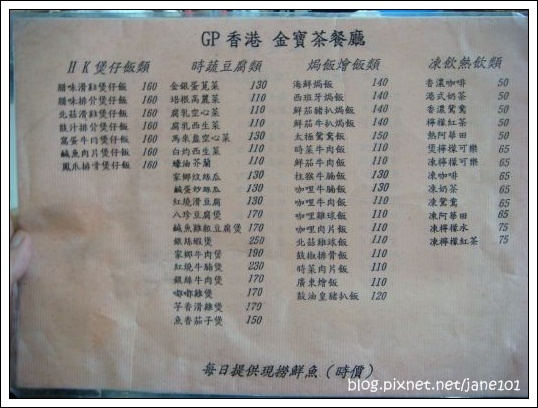 GP 香港 金寶茶餐廳
HK煲仔飯類
臘味滑雞煲仔飯 160
臘味排骨煲仔飯 160
北菇滑雞煲仔飯 160
豉汁排骨煲仔飯 160
窩蛋牛肉煲仔飯 160
鹹魚肉片煲仔飯 160
鳳爪排骨煲仔飯 160
時蔬豆腐類
金銀蛋莧菜 130
培根高麗菜 110
腐乳空心菜 110
腐乳西生菜 110
馬來盞空心菜 150
白灼西生菜 110
蠔油芥蘭 110
家鄉炆絲瓜 130
鹹蛋炒絲瓜 130
紅燒滑豆腐 130
八珍豆腐煲 170
鹹魚雞粒豆腐煲 170
銀絲蝦煲 250
家鄉牛肉煲 190
紅燒牛腩煲 230
銀絲牛肉煲 170
嘟嘟雞煲 170
芋香滑雞煲 170
魚香茄子煲 150
焗飯燴飯類
海鮮焗飯 140
西班牙焗飯 140
鮮茄豬扒焗飯 140
鮮茄牛扒焗飯 140
太極鴛鴦飯 150
時菜牛肉飯 110
鮮茄牛肉飯 110
柱猴牛腩飯 130
咖哩牛腩飯 130
咖哩牛肉飯 110
咖哩雞球飯 110
咖哩肉片飯 110
北菇雞球飯 110
豉椒排骨飯 110
時菜肉片飯 110
廣東燴飯 110
豉油皇豬扒飯 120
凍飲熱飲類
香濃咖啡 50
港式奶茶 50
香濃鴛鴦 50
檸檬紅茶 50
熱阿華田 50
煲檸檬可樂 65
凍檸檬可樂 65
凍咖啡 65
凍奶茶 65
凍鴛鴦 65
凍阿華田 65
凍檸檬水 75
凍檸檬紅茶 75
每日提供現撈鮮魚(時價)
blog.pixnet.net/jane101